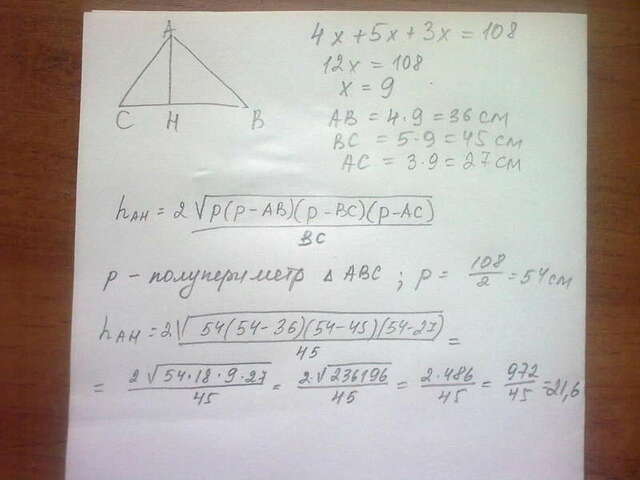 A
C H B
4x + 5x + 3x = 108
12x = 108
x = 9
AB = 4·9 = 36 см
BC = 5·9 = 45 см
AC = 3·9 = 27 см
h_AH = 2√(p(p-AB)(p-BC)(p-AC)) / BC
p - полупериметр Δ ABC ; p = 108/2 = 54 см
h_AH = 2√(54(54-36)(54-45)(54-27)) / 45 =
= 2√(54·18·9·27) / 45 = 2·√236196 / 45 = 2·486 / 45 = 972/45 = 21,6